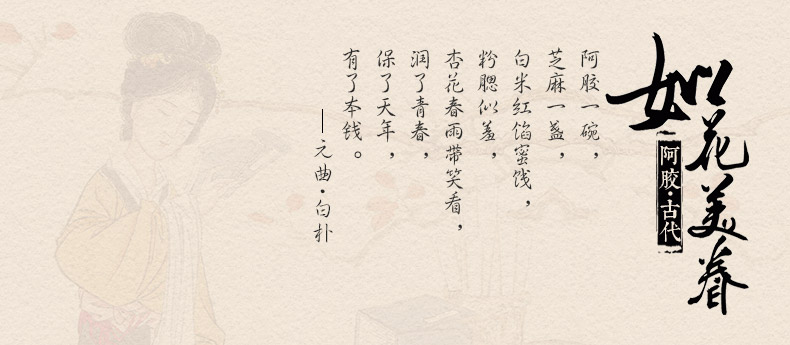 如花美眷
阿胶·古代
阿胶一碗，
芝麻一盏，
白米红馅蜜饯，
粉腮似羞，
杏花春雨带笑看，
润了青春，
保了天年，
有了本钱。
—元曲·白朴